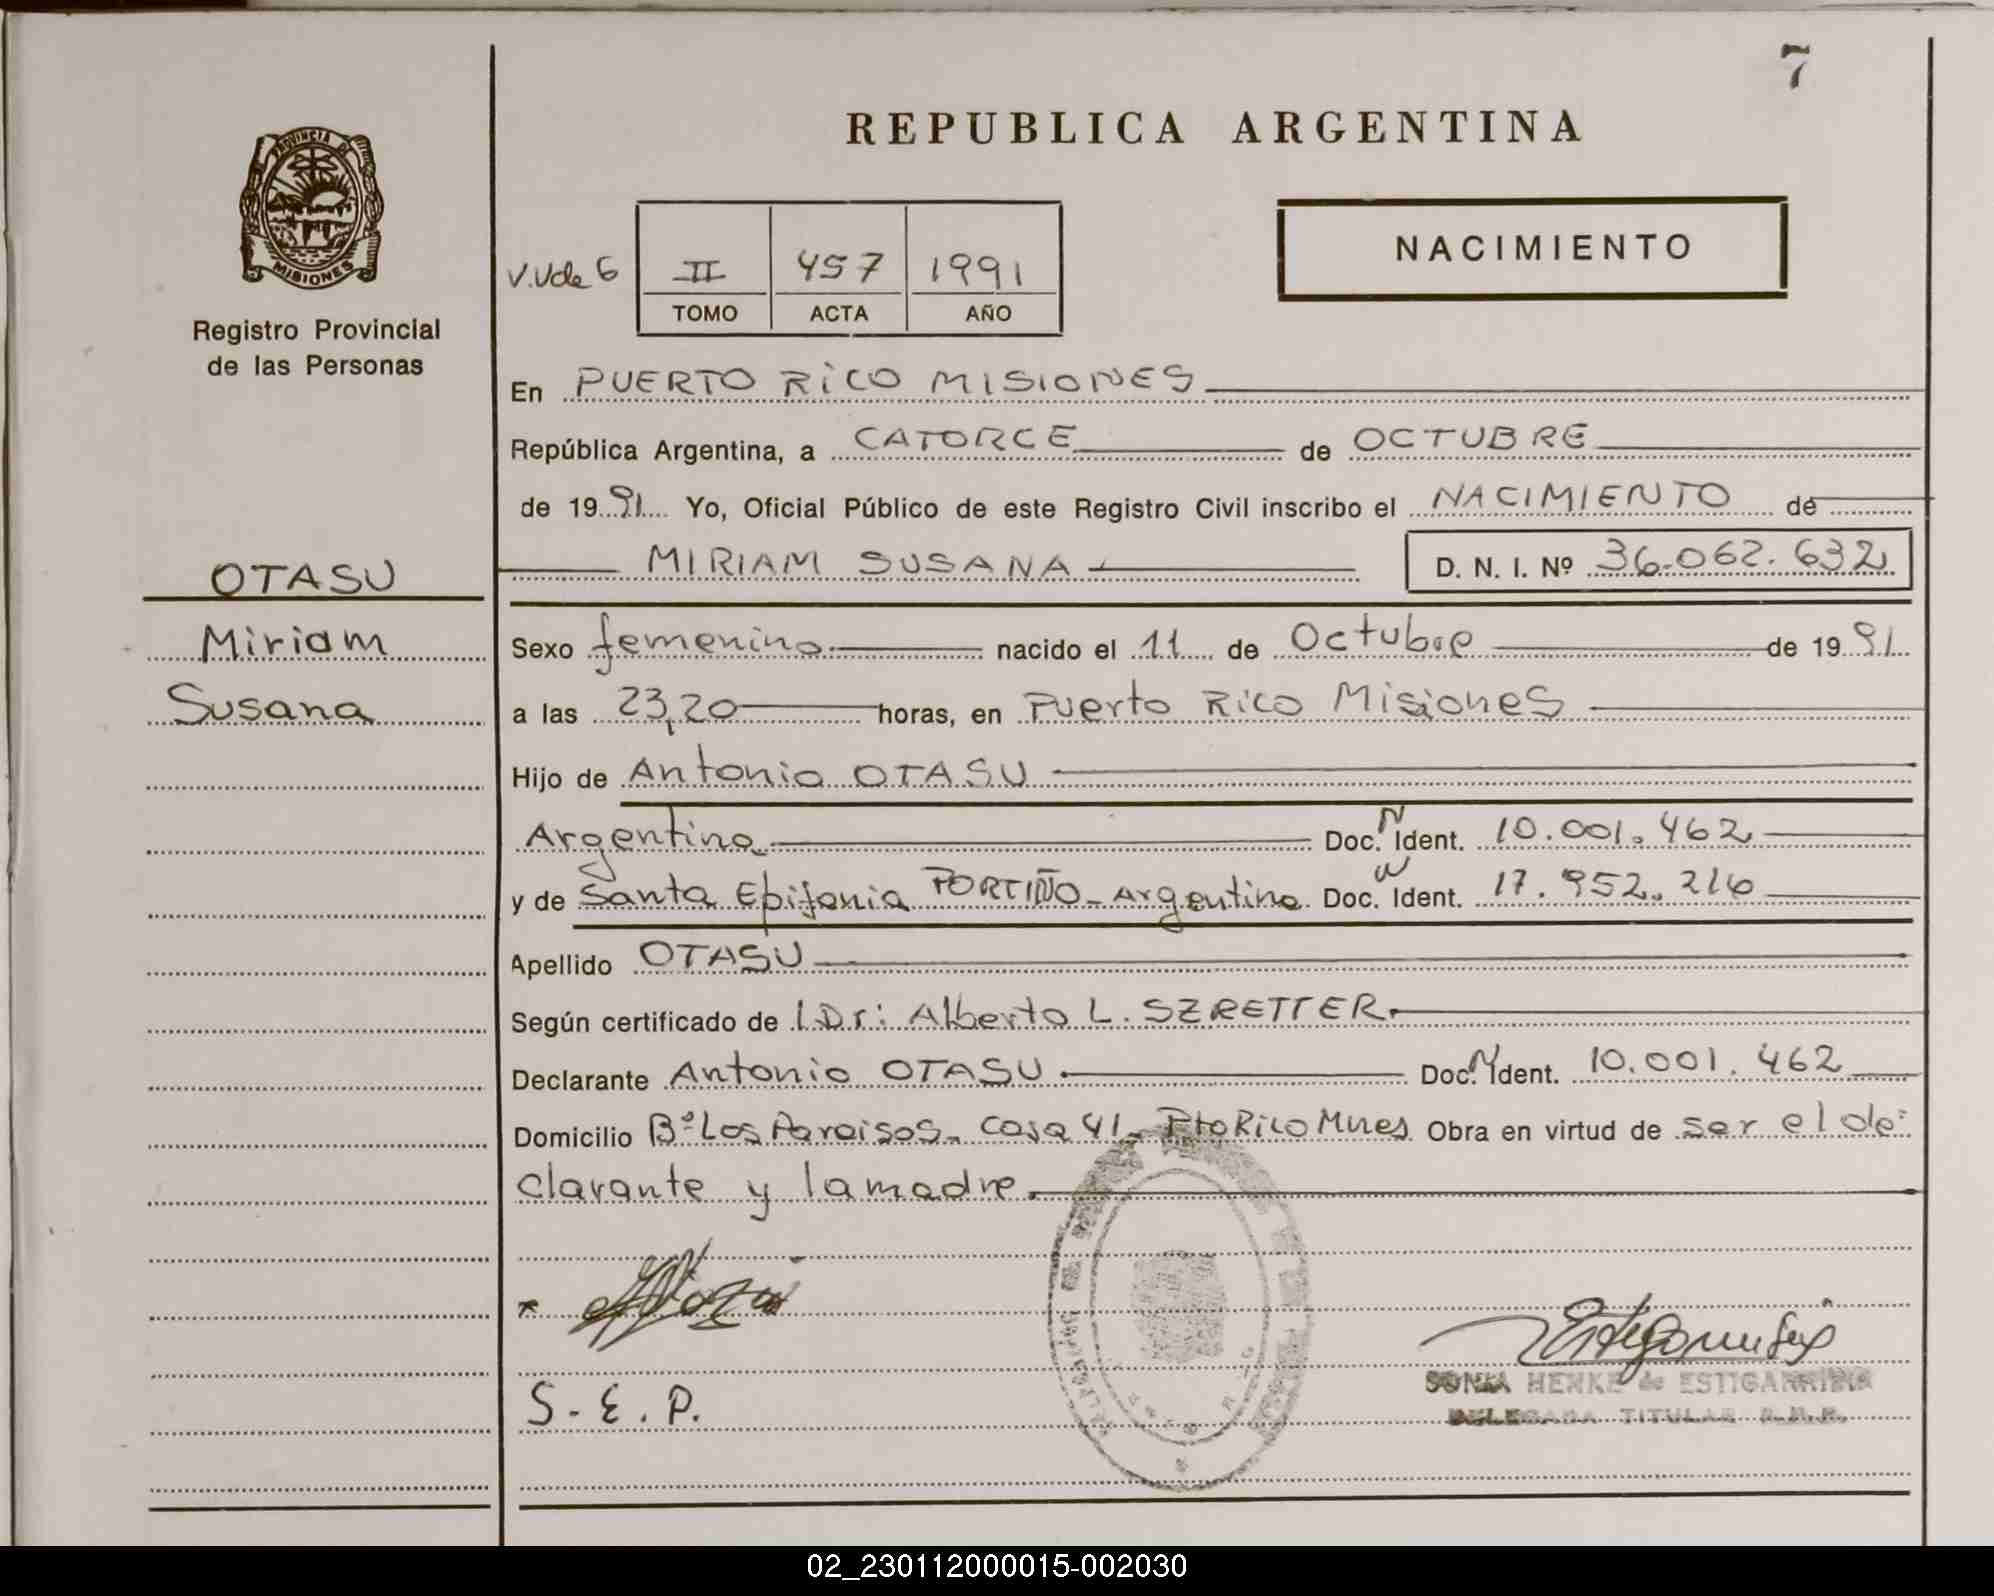 7
REPUBLICA ARGENTINA
PROVINCIA DE
MISIONES
Registro Provincial
de las Personas
V.Vde 6
II 457 1991
TOMO ACTA AÑO
NACIMIENTO
En PUERTO RICO MISIONES
República Argentina, a CATORCE de OCTUBRE
de 1991 Yo, Oficial Público de este Registro Civil inscribo el NACIMIENTO de
MIRIAM SUSANA D. N. I. Nº 36.062.632
OTASU
Miriam
Susana
Sexo femenino nacido el 11 de Octubre de 1991
a las 23,20 horas, en Puerto Rico Misiones
Hijo de Antonio OTASU
Argentino Doc. N Ident. 10.001.462
y de Santa Epifania PORTIÑO - Argentina Doc. N Ident. 17.952.216
Apellido OTASU
Según certificado de l.Dr: Alberto L. SZRETTER.
Declarante Antonio OTASU Doc. N Ident. 10.001.462
Domicilio Bº Los Paraisos - Casa 41 - Pto Rico Mnes Obra en virtud de ser el de-
clarante y la madre.
S.E.P.
SONIA HENKE de ESTIGARRIBIA
DELEGADA TITULAR
02_230112000015-002030